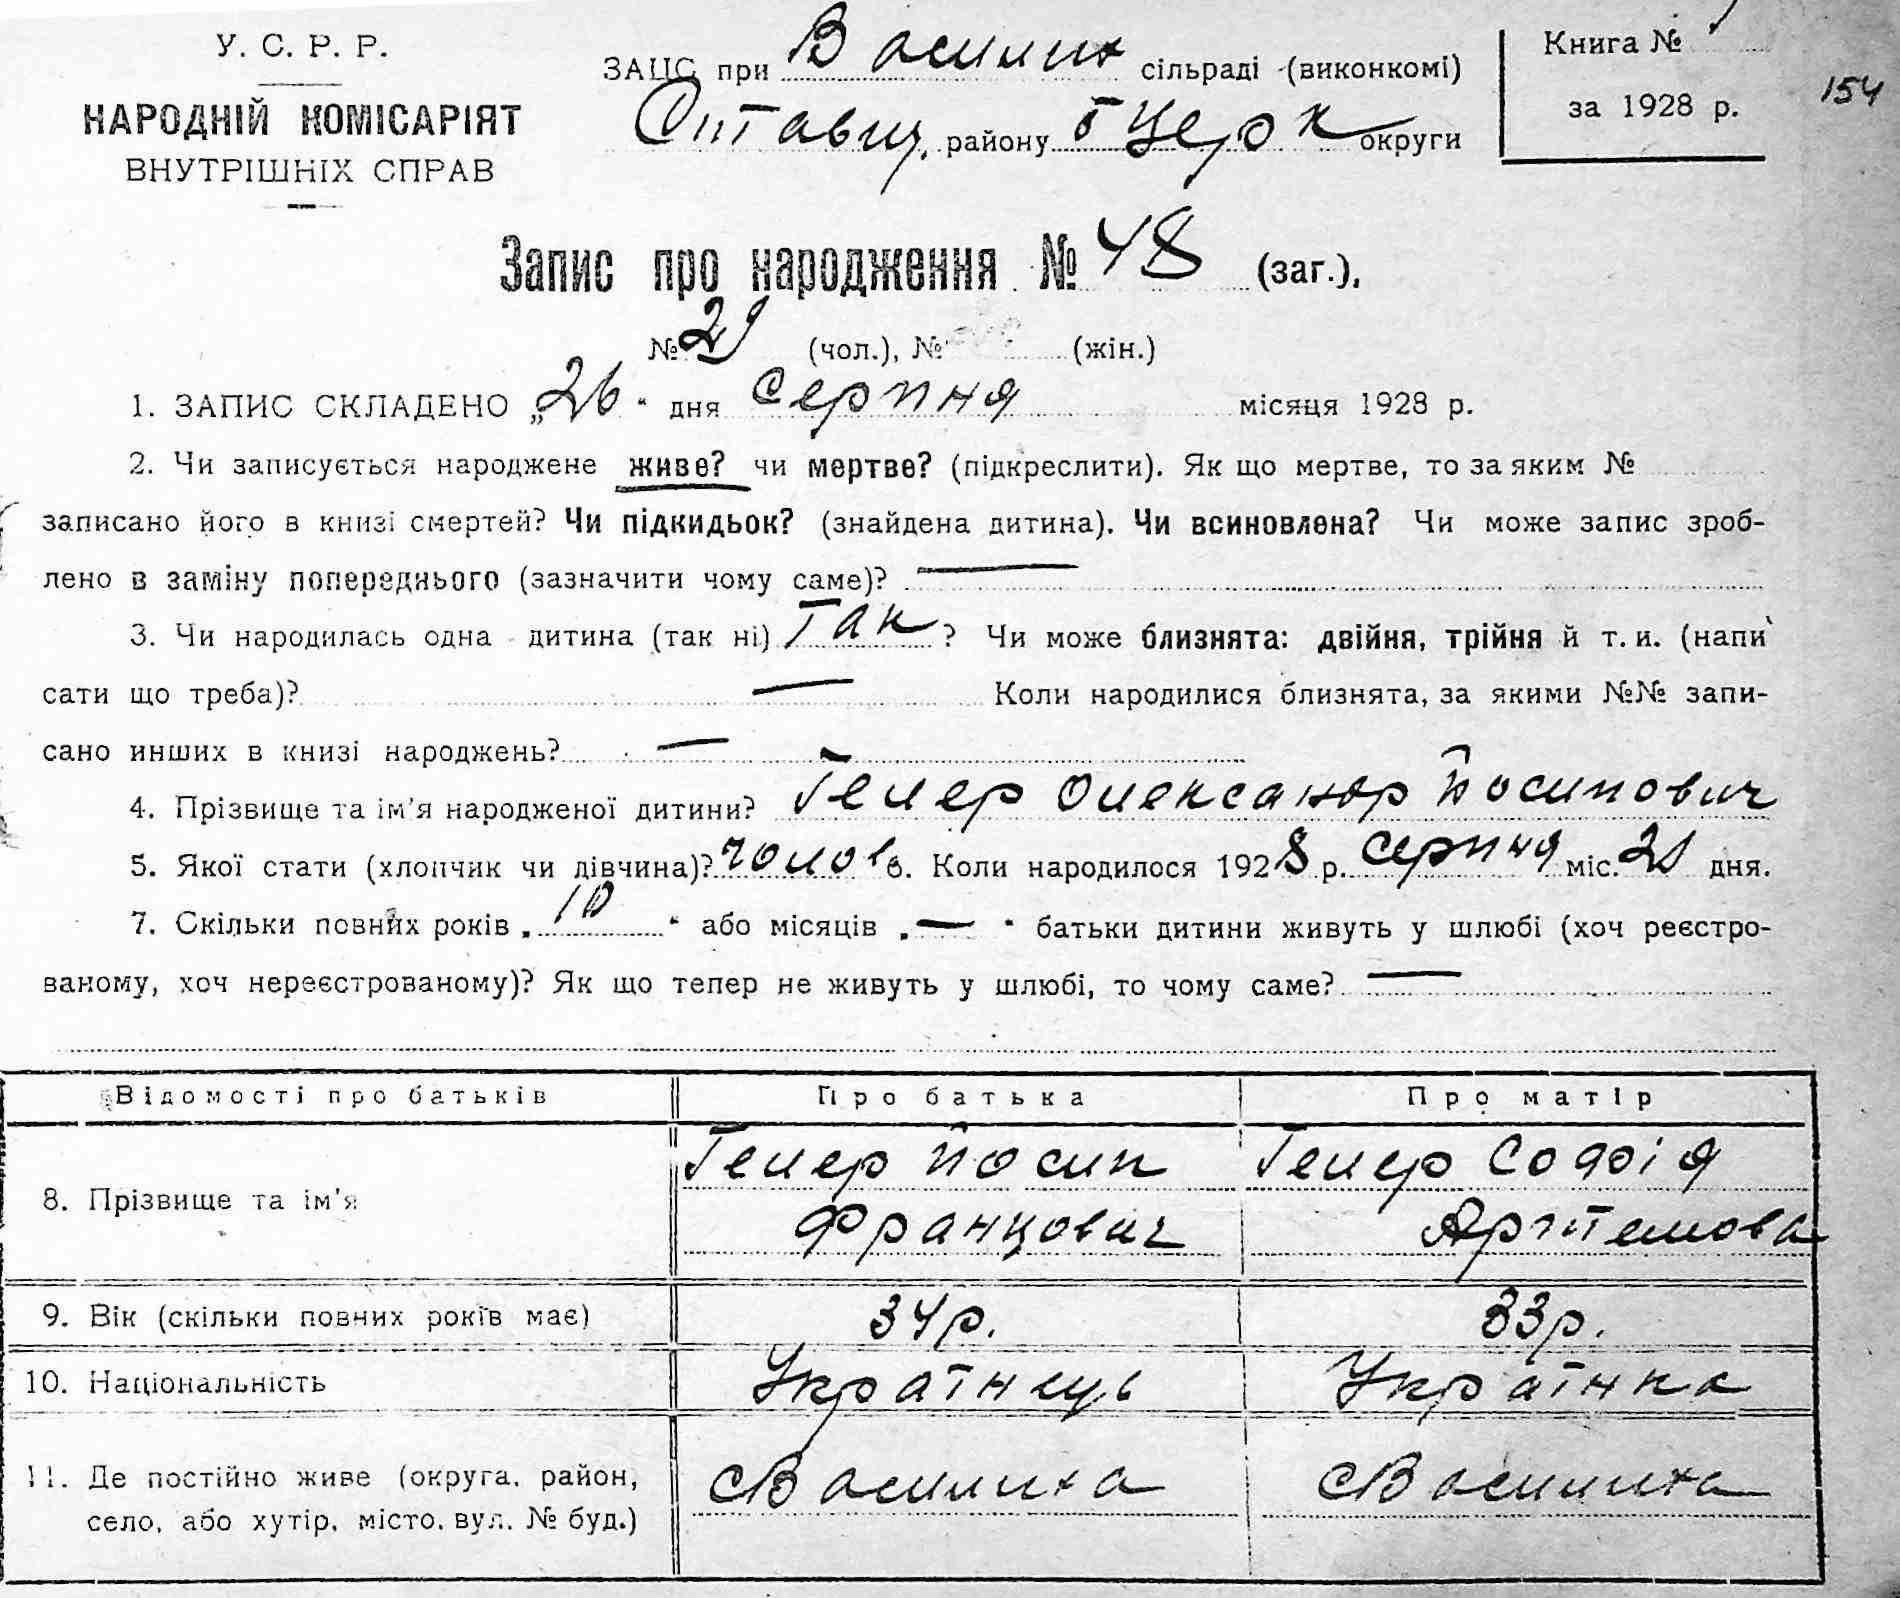 У. С. Р. Р.
НАРОДНІЙ КОМІСАРІЯТ
ВНУТРІШНІХ СПРАВ
ЗАЦС при Васились сільраді (виконкомі)
Ситавец. району БЦерк округи
Книга №
за 1928 р.
154
Запис про народження № 48 (заг.),
№ 29 (чол.), № (жін.)
1. ЗАПИС СКЛАДЕНО „26“ дня Серпня місяця 1928 р.
2. Чи записується народжене живе? чи мертве? (підкреслити). Як що мертве, то за яким №
записано його в книзі смертей? Чи підкидьок? (знайдена дитина). Чи всиновлена? Чи може запис зроб-
лено в заміну попереднього (зазначити чому саме)? —
3. Чи народилась одна дитина (так ні) Так? Чи може близнята: двійня, трійня й т. и. (напи
сати що треба)? — Коли народилися близнята, за якими №№ запи-
сано инших в книзі народжень? —
4. Прізвище та ім'я народженої дитини? Гелер Олександр Йосипович
5. Якої стати (хлопчик чи дівчина)? Чолов. 6. Коли народилося 1928 р. Серпня міс. 21 дня.
7. Скільки повних років „10“ або місяців „—“ батьки дитини живуть у шлюбі (хоч реєстро-
ваному, хоч нереєстрованому)? Як що тепер не живуть у шлюбі, то чому саме? —
Відомості про батьків Про батька Про матір
8. Прізвище та ім'я Гелер Йосип Францович Гелер Софія Артемова
9. Вік (скільки повних років має) 34 р. 33 р.
10. Національність Українець Українка
11. Де постійно живе (округа, район, село, або хутір, місто, вул. № буд.) с Василиха с Василиха